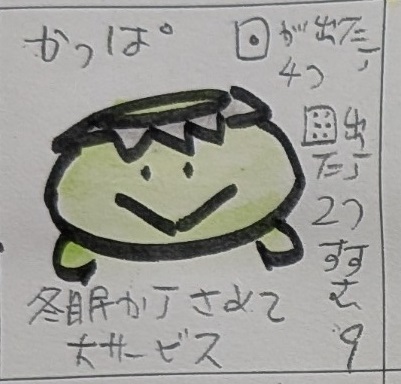 かっぱ
が出たら
4つ
出
たら
2つ
すす
む
9
冬眠からさめて
大サービス